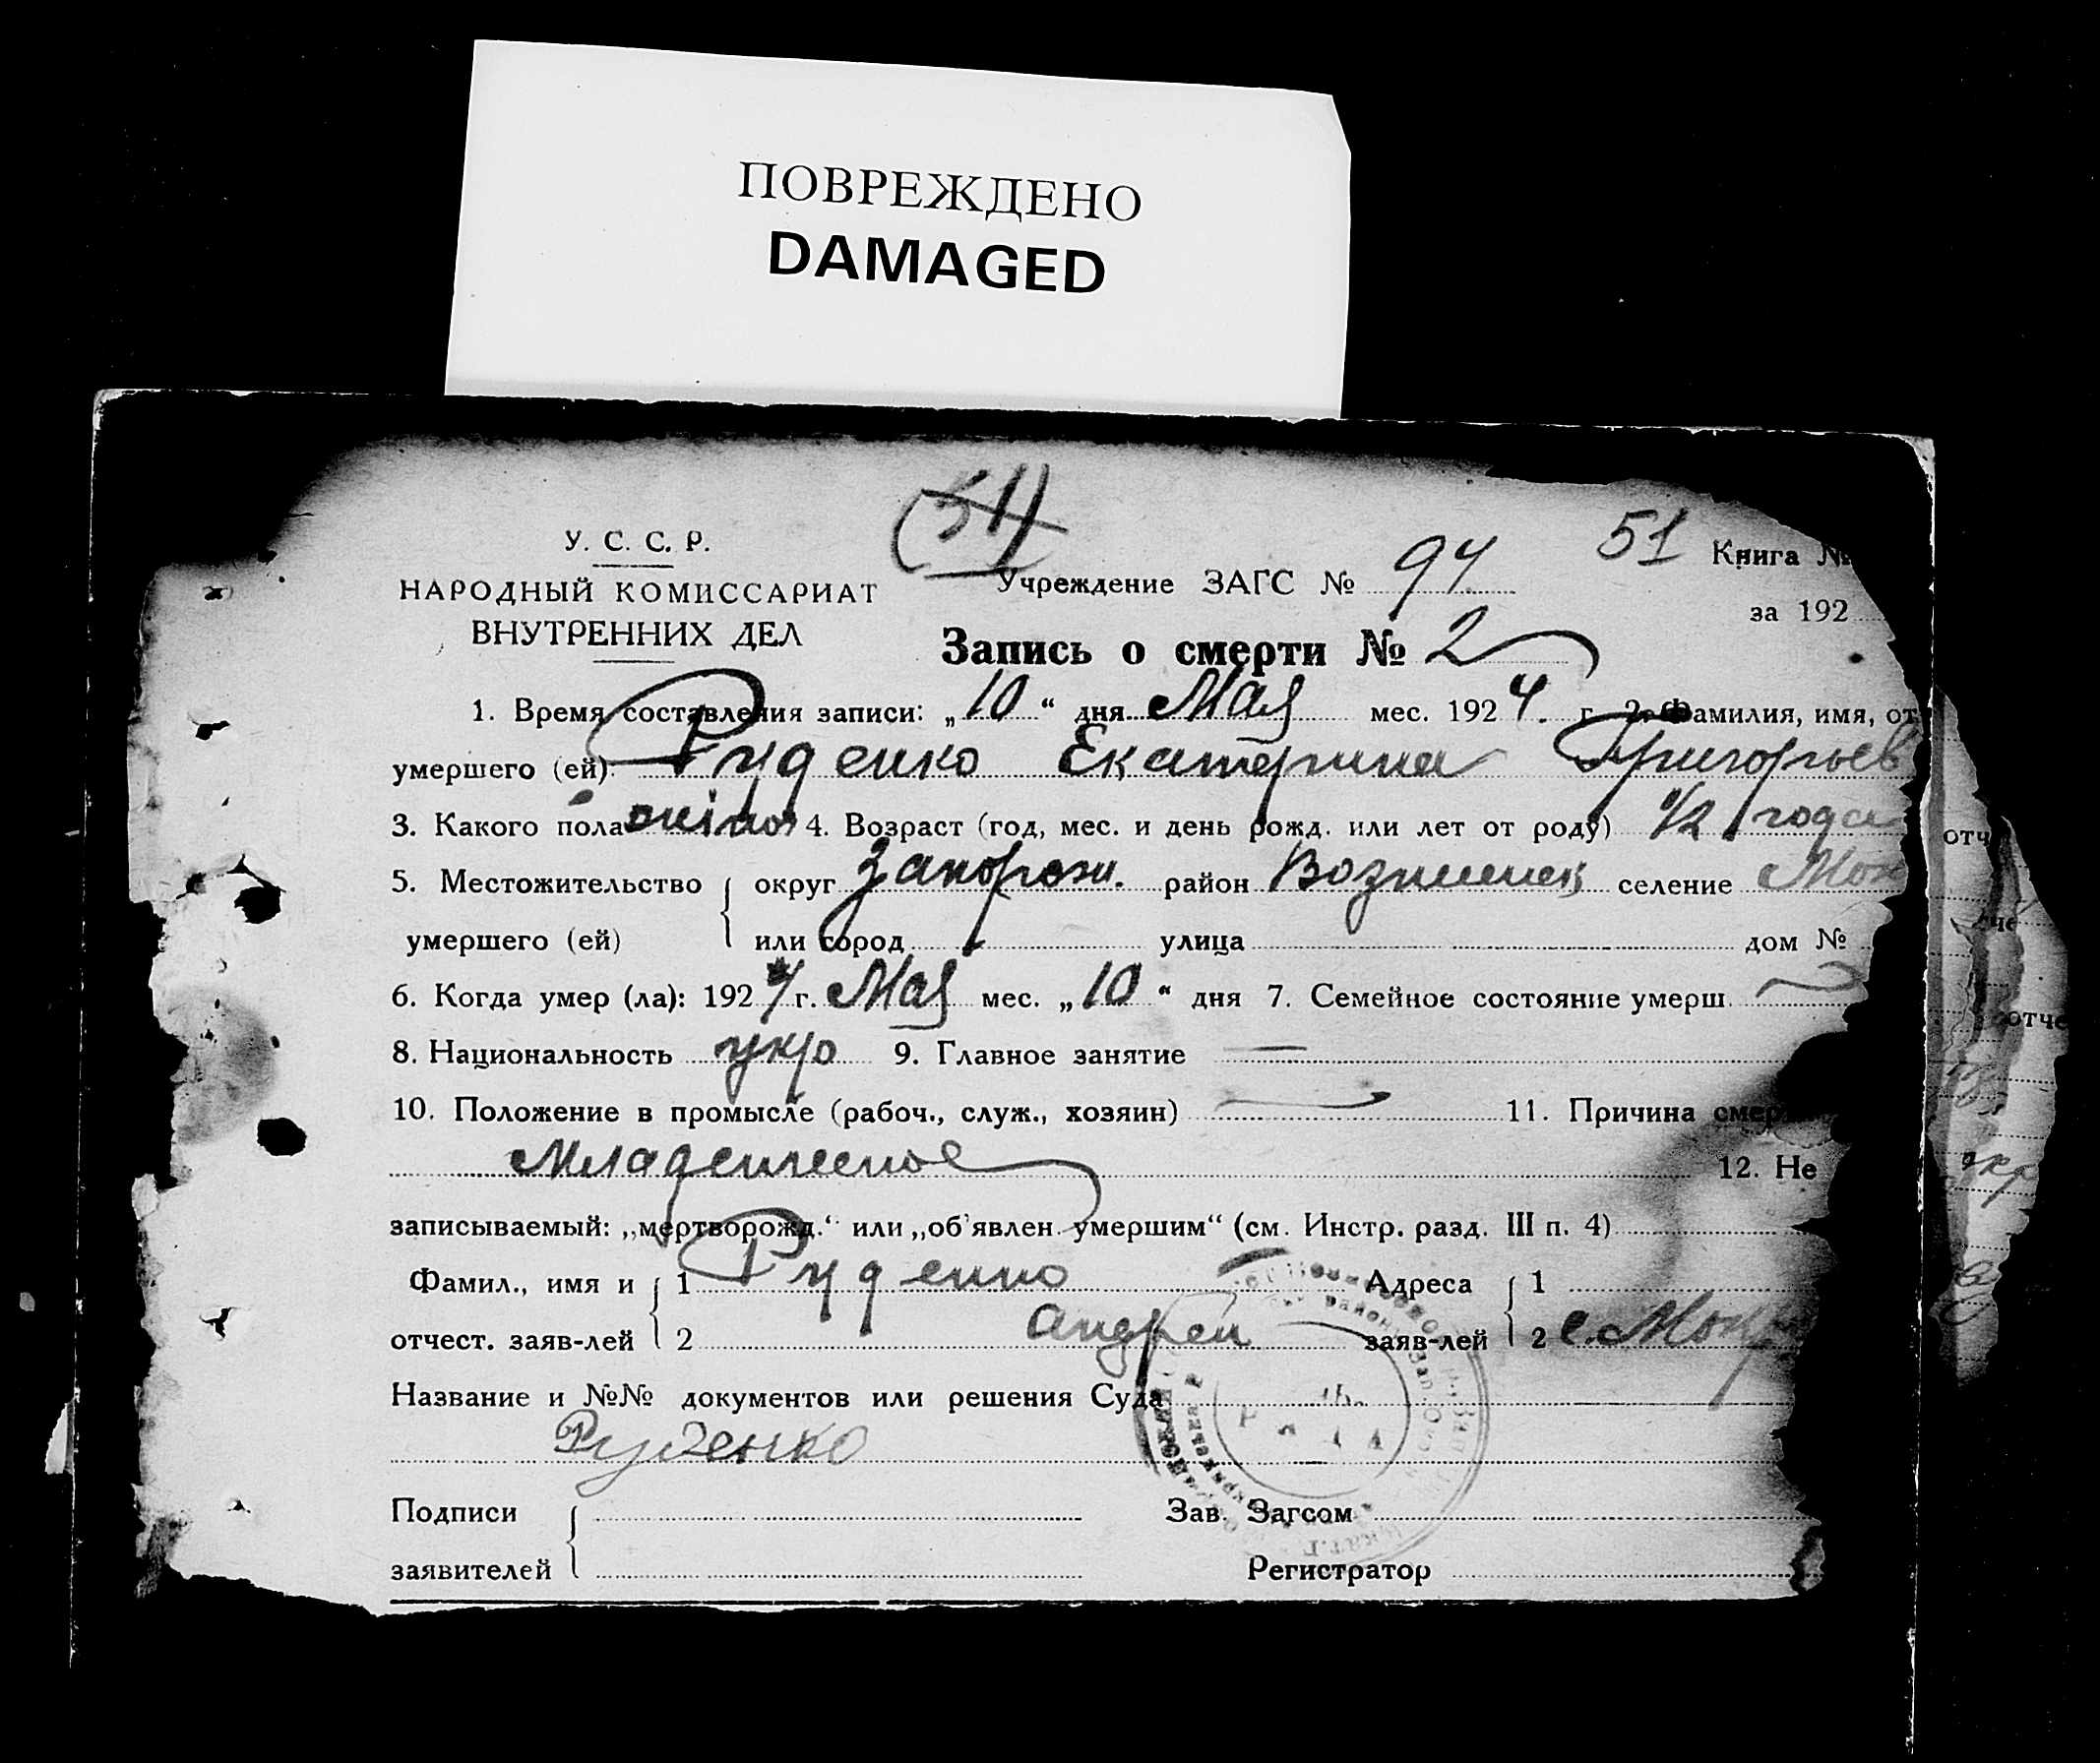 ПОВРЕЖДЕНО
DAMAGED
(51)
У. С. С. Р.
НАРОДНЫЙ КОМИССАРИАТ
ВНУТРЕННИХ ДЕЛ
Учреждение ЗАГС № 94
51 Книга №
за 192
Запись о смерти № 2
1. Время составления записи: „10“ дня Мая мес. 1924. г. 2. Фамилия, имя, от
умершего (ей): Руденко Екатерина Григорьев
3. Какого пола 4. Возраст (год, мес. и день рожд. или лет от роду) 1/2 года
5. Местожительство округ Запорож. район Вознесенск селение Мок
умершего (ей) или город улица дом №
6. Когда умер (ла): 1924 г. Мая мес. „10“ дня 7. Семейное состояние умерш.
8. Национальность укр 9. Главное занятие —
10. Положение в промысле (рабоч., служ., хозяин) — 11. Причина смер
Младенческое 12. Не
записываемый: „мертворожд.“ или „об'явлен умершим“ (см. Инстр. разд. III п. 4)
Фамил., имя и 1 Руденко Адреса 1
отчест. заяв-лей 2 Андрей заяв-лей 2 с. Мокр
Название и №№ документов или решения Суда
Руденко
Подписи Зав. Загсом
заявителей Регистратор